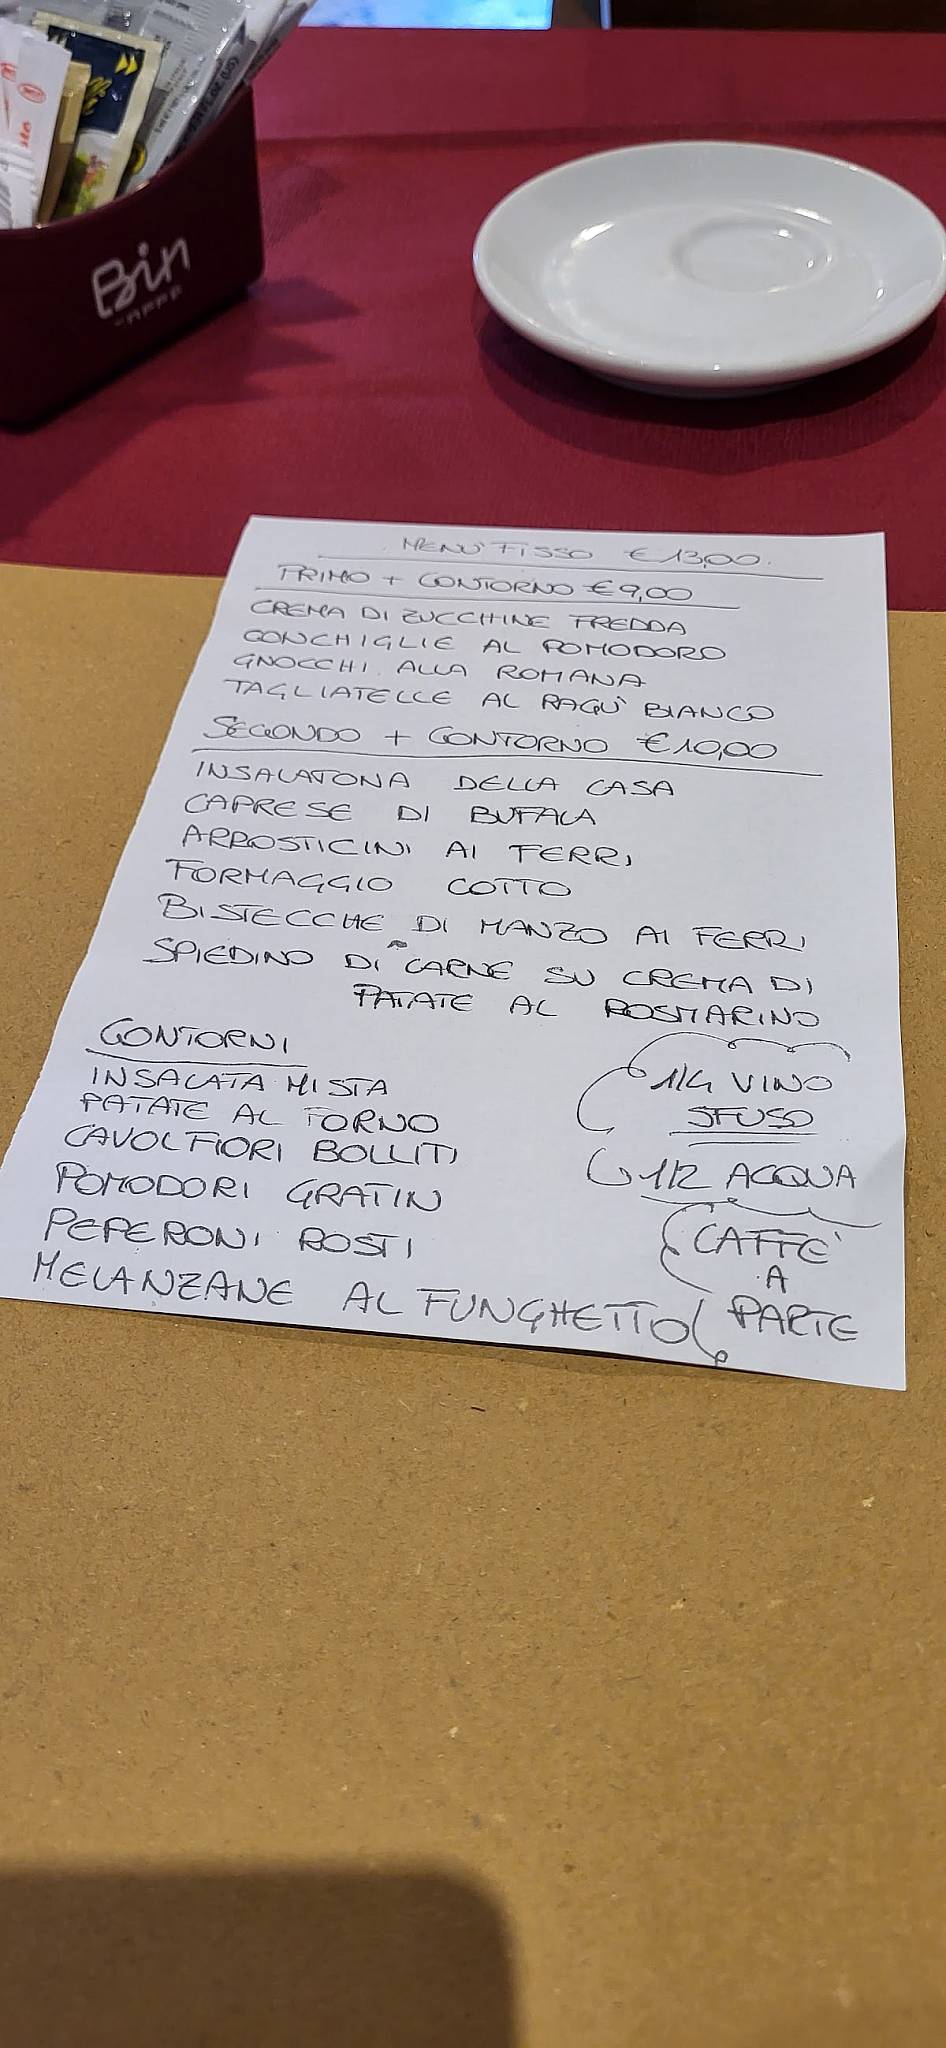 Bin
MENU' FISSO € 13,00.
PRIMO + CONTORNO € 9,00
CREMA DI ZUCCHINE FREDDA
CONCHIGLIE AL POMODORO
GNOCCHI ALLA ROMANA
TAGLIATELLE AL RAGU' BIANCO
SECONDO + CONTORNO € 10,00
INSALATONA DELLA CASA
CAPRESE DI BUFALA
ARROSTICINI AI FERRI
FORMAGGIO COTTO
BISTECCHE DI MANZO AI FERRI
SPIEDINO DI CARNE SU CREMA DI
PATATE AL ROSMARINO
CONTORNI
INSALATA MISTA
PATATE AL FORNO
CAVOLFIORI BOLLITI
POMODORI GRATIN
PEPERONI ROSTI
MELANZANE AL FUNGHETTO
1/4 VINO
SFUSO
1/2 ACQUA
CAFFE'
A
PARTE